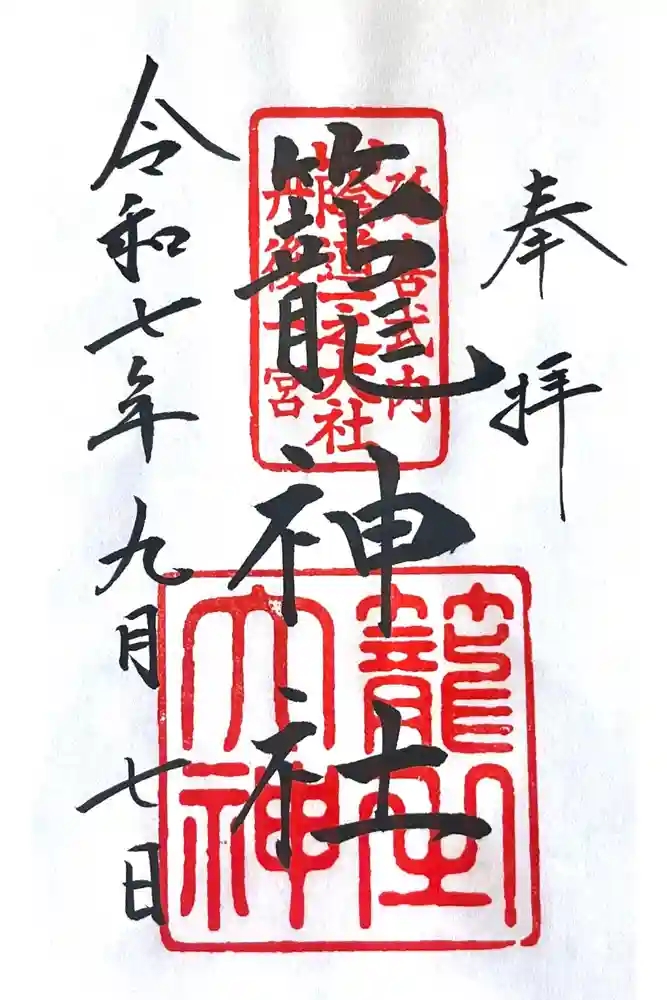 奉拝
延喜式内
山陰道一之大社
丹後一宮
籠神社
籠宮
大神
令和七年九月七日